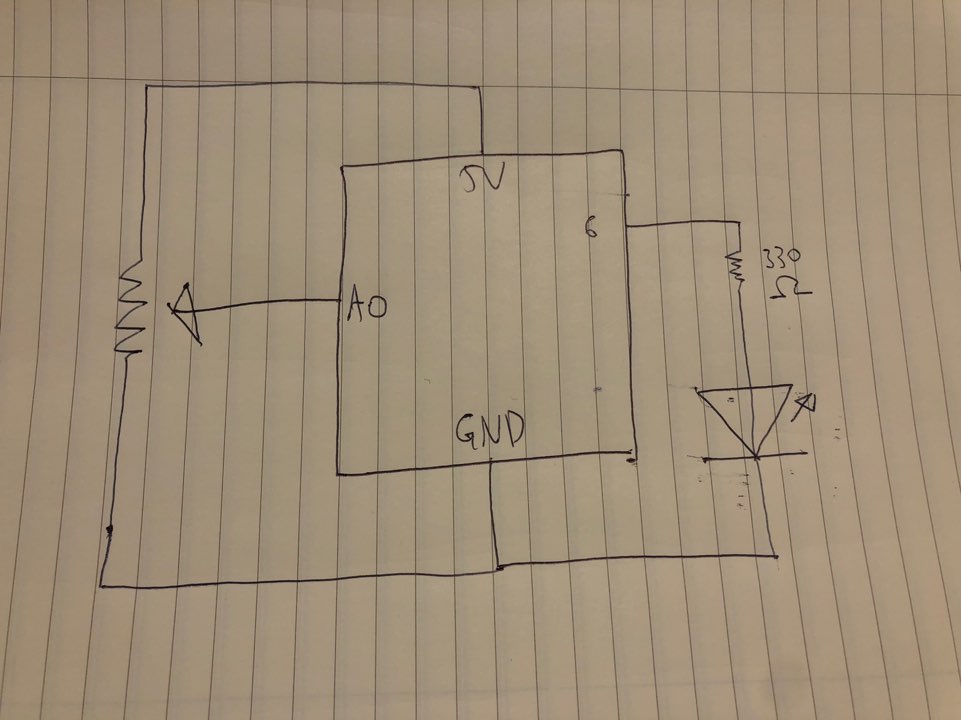 5V
6
330
Ω
A0
GND